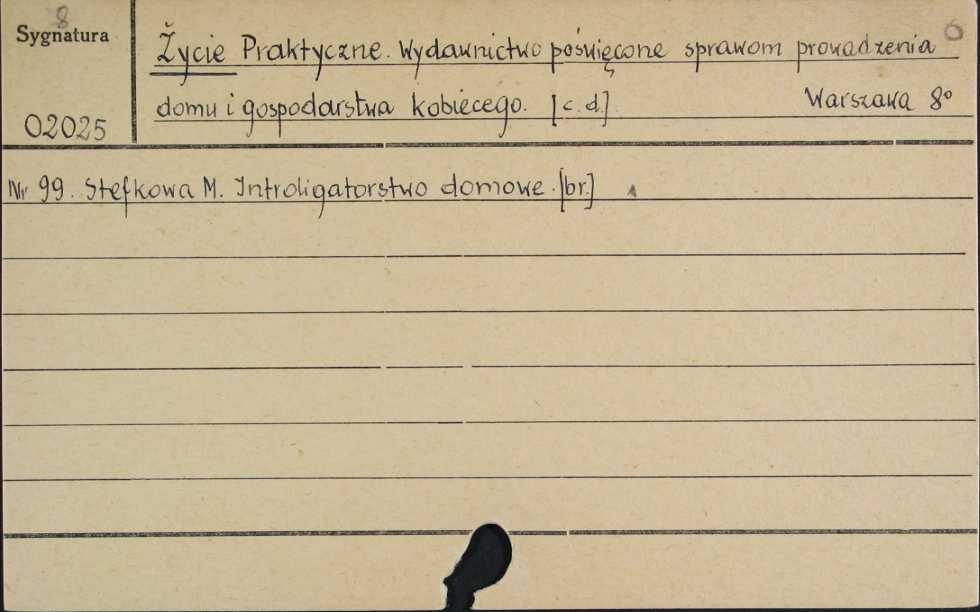 8
Sygnatura
02025
Życie Praktyczne. Wydawnictwo poświęcone sprawom prowadzenia 6
domu i gospodarstwa kobiecego. [c.d.] Warszawa 8°
Nr 99. Stefkowa M. Introligatorstwo domowe. [br.]